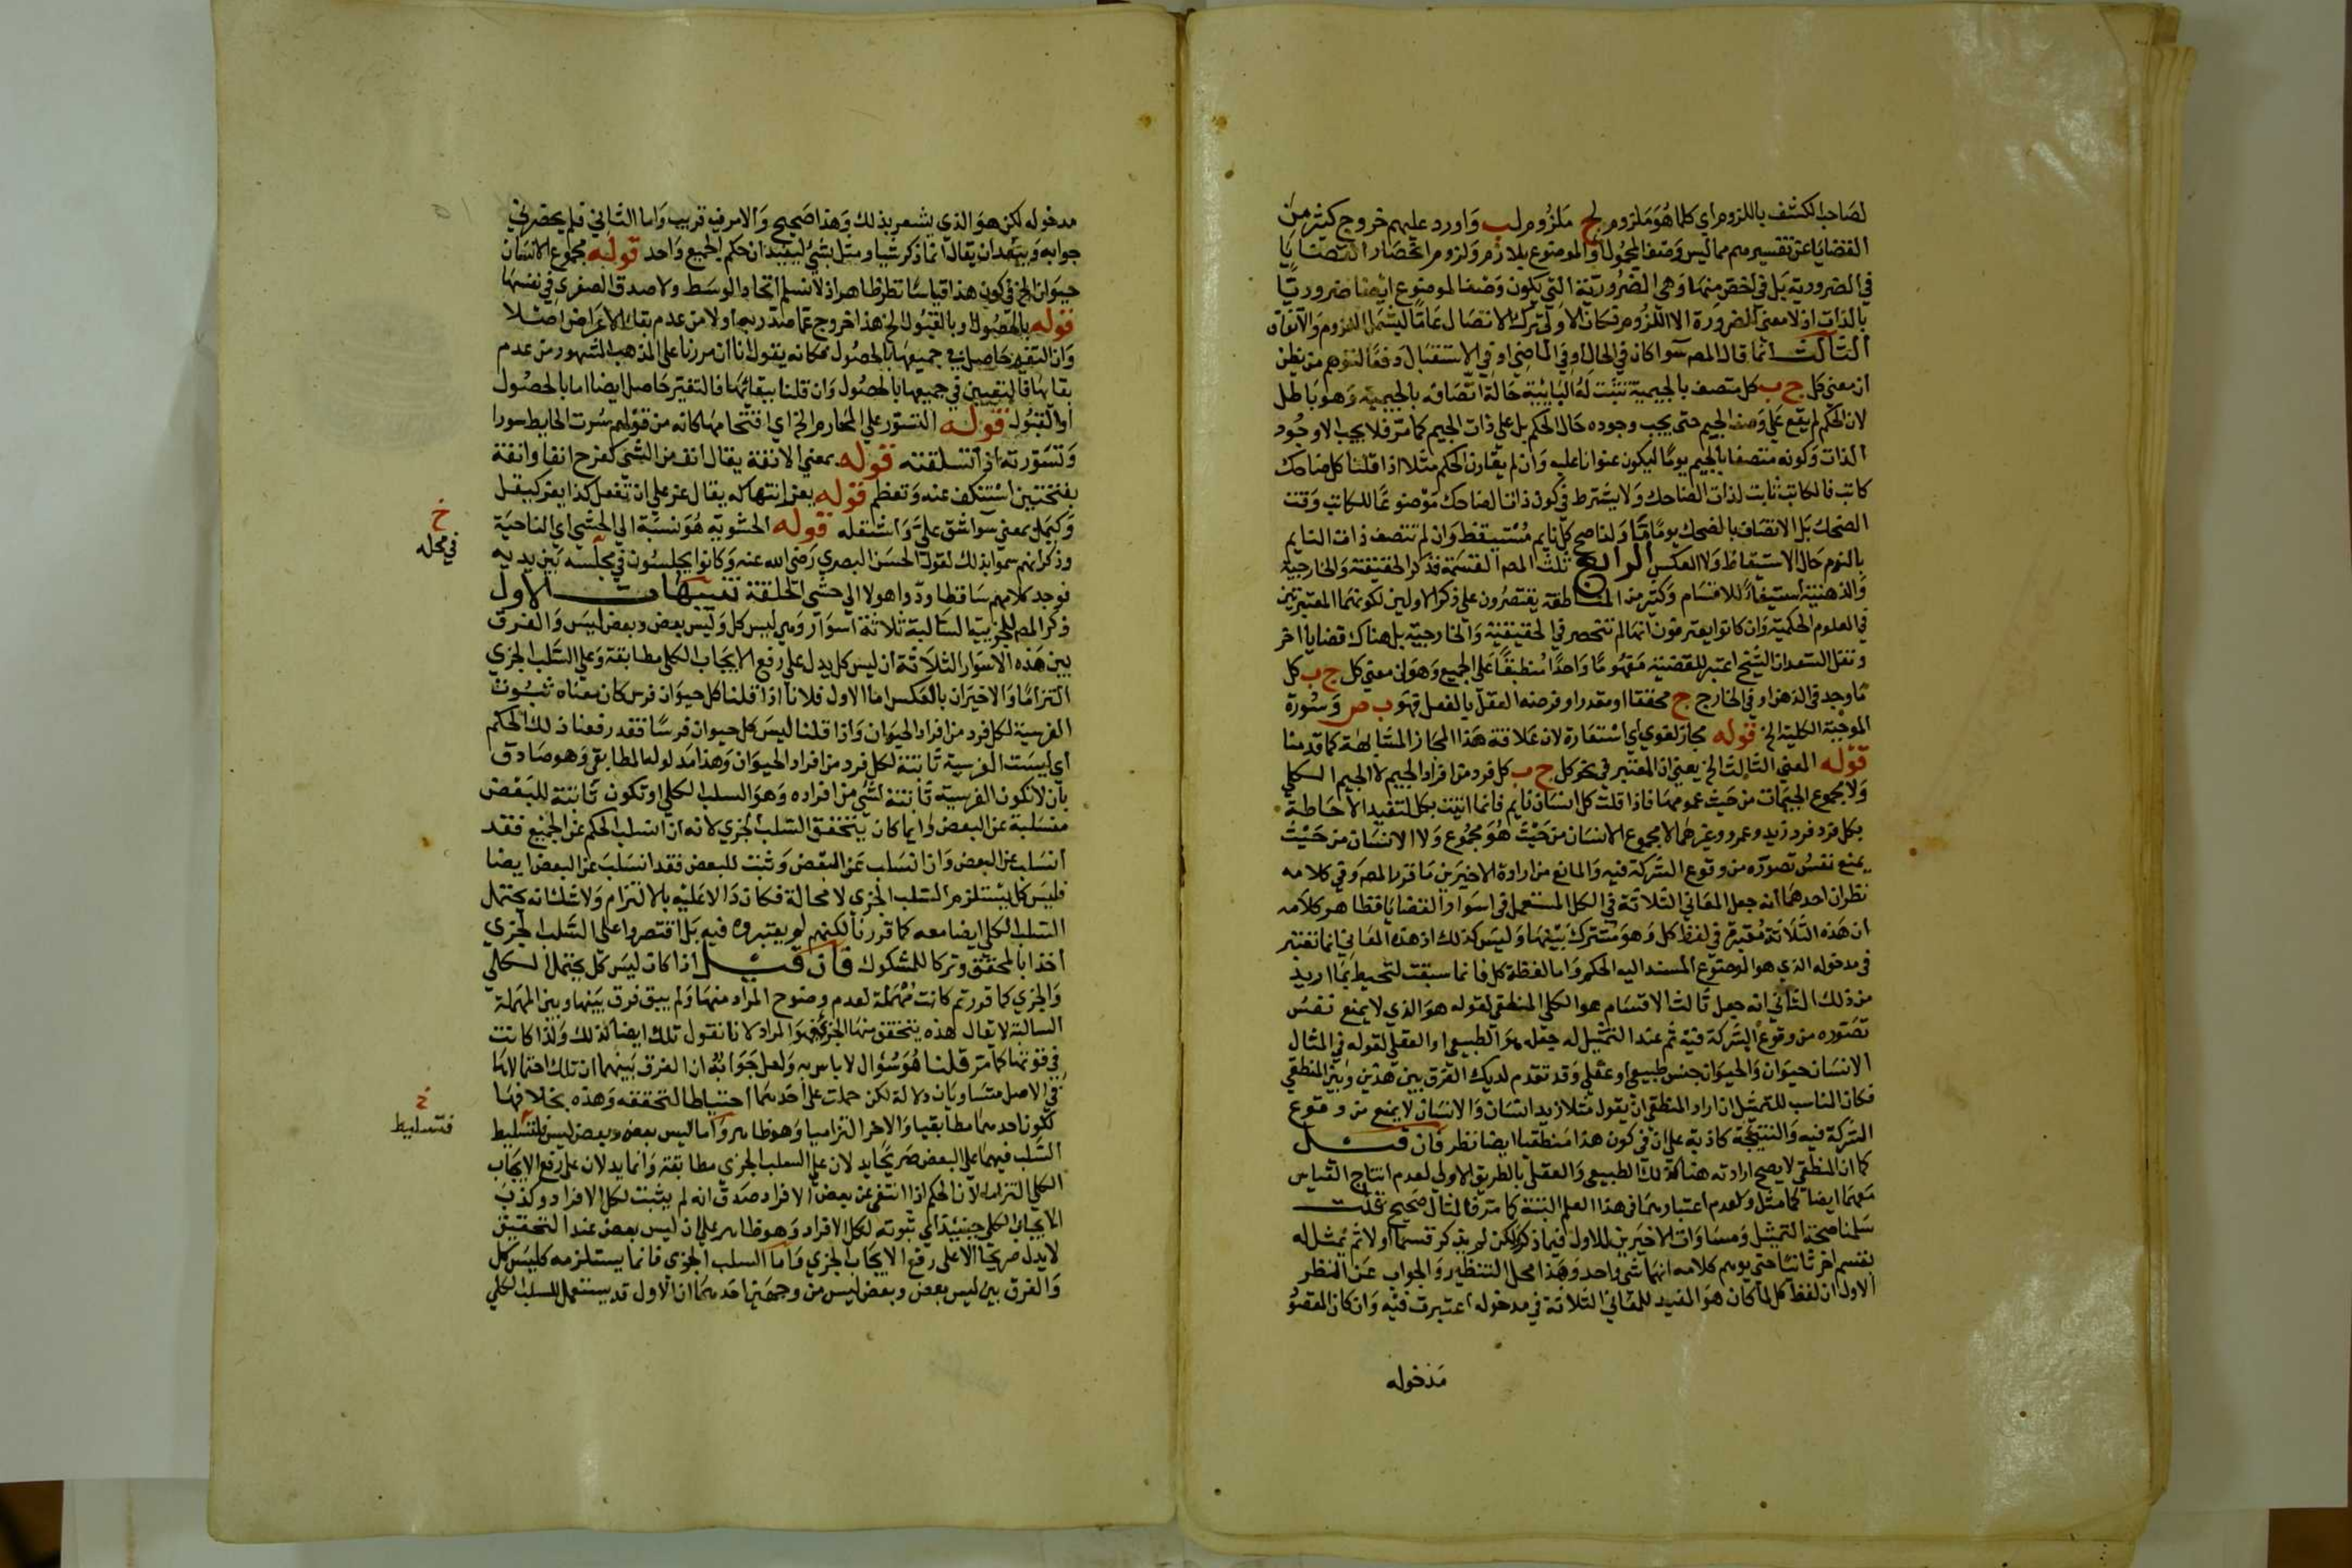 لصاحب الكشف باللزوم اي كلما هو ملزوم لج ملزوم لب واورد عليهم خروج كثير من
القضايا عن تفسيرهم مما ليس وصف المحمول او الموضوع بلازم ولزوم انحصار القضايا
في الضرورية بل في اخص منها وهي الضرورية التي يكون وصف الموضوع ايضا ضروريا
بالذات اذ لا معنى للضرورة الا اللزوم فكان الاولى ترك الاتصال عاما ليشمل اللزوم والاتفاق
الثالث انما قال المص سوا كان في الحال او في الماضي او في الاستقبال دفعا لتوهم من يظن
ان معنى كل ج ب كل متصف بالجيمية تثبت له البائية حالة اتصافه بالجيمية وهو باطل
لان الحكم لم يقع على وصف الجيم حتى يجب وجوده حال الحكم بل على ذات الجيم كما مر فلا يجب الا وجود
الذات وكونه متصفا بالجيم يوما ليكون عنوانا عليه وان لم يقارن الحكم مثلا اذا قلنا كل ضاحك
كاتب فالكاتب ثابت لذات الضاحك ولا يشترط في كون ذات الضاحك موضوعا للكاتب وقت
الضحك بل الاتصاف بالضحك يوما ما ولذا صح كل نايم مستيقظ وان لم تتصف ذات النايم
بالنوم حال الاستيقاظ ولا العكس الرابع ثلث المص القسمة فذكر الحقيقية والخارجية
والذهنية استيفاء للاقسام وكثير من المناطقة يقتصرون على ذكر الاولين لكونهما المعتبرتين
في العلوم الحكمية وان كانوا يعترفون انها لم تنحصر في الحقيقية والخارجية بل هناك قضايا اخر
ونقل السعد ان الشيخ اعتبر للقضية مفهوما واحدا منطبقا على الجميع وهو ان معنى كل ج ب كل
ما وجد في الذهن او في الخارج ج محققا او مقدرا وفرضه العقل بالفعل فهو ب ص وسورة
الموجبة الكلية الخ قوله مجاز لغوي اي استعارة لان علاقة هذا المجاز المشابهة كما قدمنا
قوله المعنى الثالث الخ يعني ان المعتبر في نحو كل ج ب كل فرد من افراد الجيم لا الجيم الكلي
ولا مجموع الجيمات من حيث عمومها فاذا قلت كل انسان نايم فانما اتيت بكل لتفيد الاحاطة
بكل فرد فرد زيد وعمرو وغيرهما لا مجموع الانسان من حيث هو مجموع ولا الانسان من حيث
يمنع نفس تصوره من وقوع الشركة فيه والمانع من ارادة الاخيرين ما قرر المص وفي كلامه
نظران احدهما انه جعل المعاني الثلاثة في الكل المستعمل في اسوار القضايا فظاهر كلامه
ان هذه الثلاثة معتبرة في لفظ كل وهو مشترك بينها وليس كذلك اذ هذه المعاني انما تعتبر
في مدخوله الذي هو الموضوع المسند اليه الحكم واما لفظة كل فانما سبقت لتحيط بما اريد
من ذلك الثاني انه جعل ثالث الاقسام هو الكلي المنطقي لقوله هو الذي لا يمنع نفس
تصوره من وقوع الشركة فيه ثم عند التمثيل له جعله هو الطبيعي او العقلي لقوله في المثال
الانسان حيوان والحيوان جنس طبيعي او عقلي وقد تقدم لديك الفرق بين هذين وبين المنطقي
فكان المناسب للتمثيل ان اراد المنطقي ان يقول مثلا زيد انسان والانسان لا يمنع من وقوع
الشركة فيه والنتيجة كاذبة على ان في كون هذا منطقيا ايضا نظر فان قيل
كما ان المنطقي لا يصح ارادته هنا كذلك الطبيعي والعقلي بالطريق الاولى لعدم انتاج القياس
معهما ايضا كما مثل ولعدم اعتبارهما في هذا العلم البتة كما مر فالمثال صحيح قلت
سلمنا صحة التمثيل ومساوات الاخيرين للاول فيما ذكر لكن لم يذكر قسما اولا ثم يمثل له
بقسم اخر ثانيا حتى يوهم كلامه انهما شي واحد وهذا محل التنظير والجواب عن النظر
الاول ان لفظ كل لما كان هو المفيد للمعاني الثلاثة في مدخوله اعتبرت فيه وان كان المقصو
مدخوله
مدخوله لكن هو الذي يشعر بذلك وهذا صحيح والامر فيه قريب واما الثاني فلم يحضرني
جوابه ويبعد ان يقال انما ذكر شيا ومثل بشي ليفيد ان حكم الجميع واحد قوله مجموع الانسان
حيوان الخ في كون هذا قياسا نظر ظاهر اذ لا نسلم اتحاد الوسط ولا صدق الصغرى في نفسها
قوله بالحصول او بالقبول الخ هذا خروج عما صدر به اولا من عدم بقاء الاعراض اصلا
وان التغير حاصل في جميعها بالحصول فكانه يقول انا ان مررنا على المذهب المشهور من عدم
بقائها فالتغيير في جميعها بالحصول وان قلنا ببقائها فالتغير حاصل ايضا اما بالحصول
او القبول قوله التسور على المحارم الخ اي اقتحامها كانه من قولهم سرت الحايط سورا
وتسورته اذا تسلقته قوله بمعنى الانفة يقال انف من الشي كفرح انفا وانفة
بفتحتين استنكف عنه وتعظم قوله يعز انتهاكه يقال عز علي ان تفعل كذا يعز كيقل
وكيمل بمعنى سوا شق علي واشتقله قوله الحشوية هو نسبة الى الحشي اي الناحية
وذكر انهم سموا بذلك لقول الحسن البصري رضي الله عنه وكانوا يجلسون في مجلسه بين يديه
فوجد كلامهم ساقطا ردوا هولا الى حشي الحلقة تنبيهات الاول
ذكر المص للجزيية السالبة ثلاثة اسوار وهي ليس كل وليس بعض وبعض ليس والفرق
بين هذه الاسوار الثلاثة ان ليس كل يدل على رفع الايجاب الكلي مطابقة وعلى السلب الجزي
التزاما والاخيران بالعكس اما الاول فلانا اذا قلنا كل حيوان فرس كان معناه ثبوت
الفرسية لكل فرد من افراد الحيوان واذا قلنا ليس كل حيوان فرسا فقد رفعنا ذلك الحكم
اي ليست الفرسية ثابتة لكل فرد من افراد الحيوان وهذا مدلوله المطابقي وهو صادق
بان لا تكون الفرسية ثابتة لشي من افراده وهو السلب الكلي او تكون ثابتة للبعض
منسلبة عن البعض وايما كان يتحقق السلب الجزي لانه ان انسلب الحكم عن الجميع فقد
انسلب عن البعض وان انسلب عن البعض وثبت للبعض فقد انسلب عن البعض ايضا
فليس كل يستلزم السلب الجزي لا محالة فكان دالا عليه بالالتزام ولا شك انه يحتمل
السلب الكلي ايضا معه كما قررنا لكنهم لم يعتبروه فيه بل اقتصروا على السلب الجزي
اخذا بالمحقق وتركا للمشكوك فان قيل اذا كان ليس كل يحتمل الكلي
والجزي كما قررتم كانت مهملة لعدم وضوح المراد منها ولم يبق فرق بينها وبين المهملة
السالبة لا يقال هذه يتحقق منها الجزي فهو المراد لانا نقول تلك ايضا كذلك ولذا كانت
في قوتها كما مر قلنا هو سؤال لا باس به ولعل جوابه ان الفرق بينهما ان تلك احتمالاها
في الاصل متساويان دلالة لكن حملت على احدهما احتياطا لتحققه وهذه بخلافها
لكون احدهما مطابقيا والاخر التزاميا وهو ظاهر واما ليس بعض وبعض ليس فلتسليط
السلب فيهما على البعض صريحا يدلان على السلب الجزي مطابقة وانما يدلان على رفع الايجاب
الكلي التزاما لان الحكم اذا انتفى عن بعض الافراد صدق انه لم يثبت لكل الافراد وكذب
الايجاب الكلي حينئذ اي ثبوته لكل الافراد وهو ظاهر على ان ليس بعض عند التحقيق
لا يدل صريحا الا على رفع الايجاب الجزي واما السلب الجزي فانما يستلزمه كليس كل
والفرق بين ليس بعض وبعض ليس من وجهين احدهما ان الاول قد يستعمل للسلب الكلي
خ
في محله
خ
فتسليط